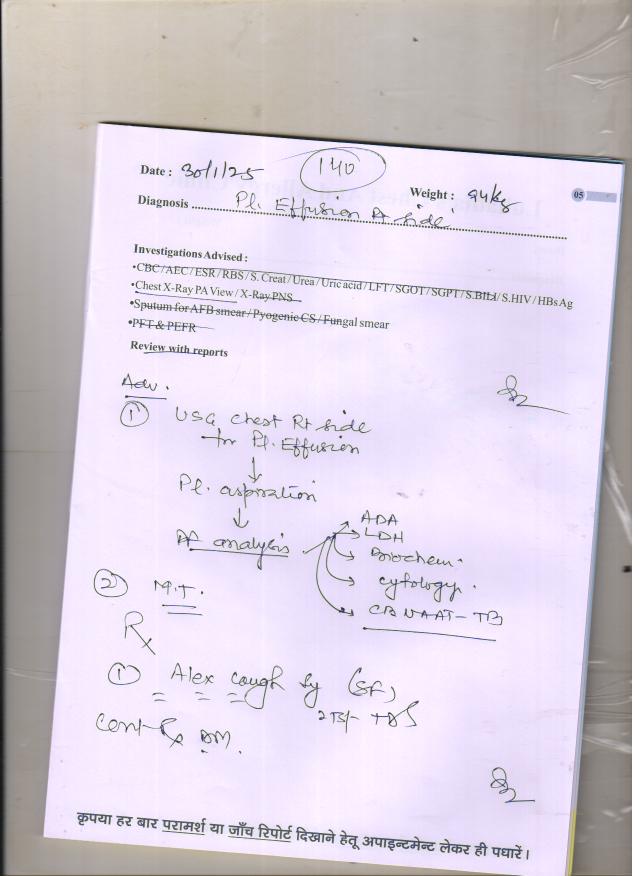 Date : 30/1/25
140
Weight : 94kg
05
Diagnosis Pl. Effusion Rt side
Investigations Advised :
•CBC/AEC/ESR/RBS/S. Creat/Urea/Uric acid/LFT/SGOT/SGPT/S.BILI/S.HIV/HBsAg
•Chest X-Ray PA View / X-Ray PNS
•Sputum for AFB smear / Pyogenic CS / Fungal smear
•PFT & PEFR
Review with reports
Adv.
① USG chest Rt side
for Pl. Effusion
↓
Pl. aspiration
↓
Pf analysis
ADA
LDH
Biochem.
cytology.
CBNAAT-TB
② M.T.
Rx
① Alex cough Sy (SF)
2TSf TDS
Cont Rx DM.
कृपया हर बार परामर्श या जाँच रिपोर्ट दिखाने हेतू अपाइन्टमेन्ट लेकर ही पधारें।